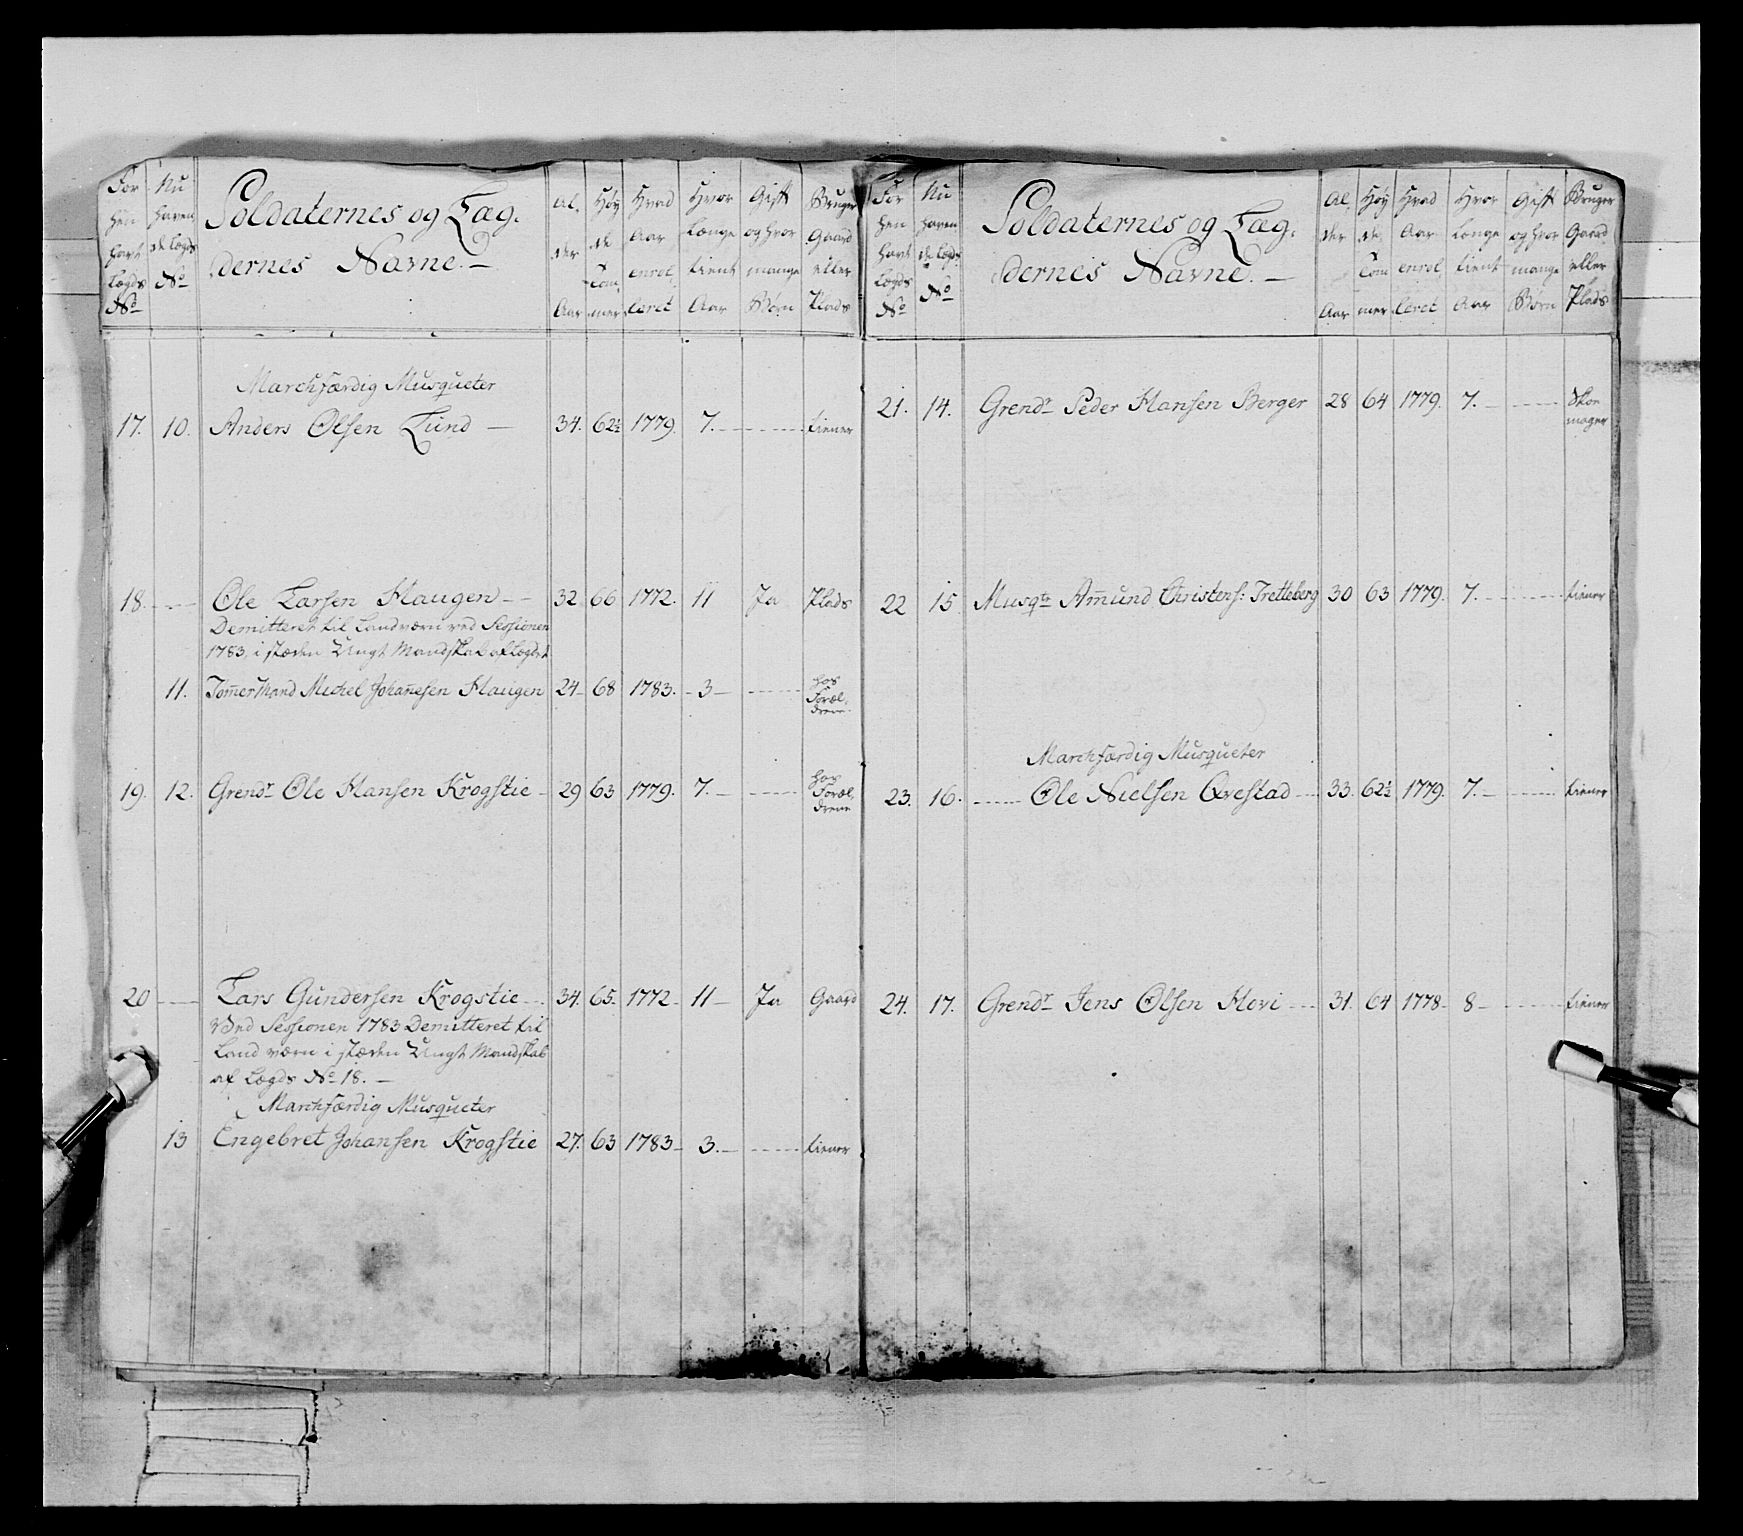 For
hen
havt
Lægds
No
Nu
haven
de Lægds
No
Soldaternes og Læg-
dernes Navne. —
Al,
der
Aar
Høy
de
Tom,
mer
Hvad
Aar
enrol,
leret
Hvor
Længe
tient
Aar
Gift
og hvor
mange
Børn
Bruger
Gaard
eller
Plads
Marchfærdig Musqueter
17. 10. Anders Olsen Lund — 34. 62½ 1779. 7. — tiener
18. Ole Larsen Haugen — 32 66 1772. 11 Ja Plads
Demitteret til Landværn ved Sessionen
1783, i stæden Ungt Mandskab af Lægdet
11. Tom̄erMand Michel Johan̄esen Haugen 24 68 1783. 3 — hos
Foræl,
drene
19. 12. Grendr Ole Hansen Krogstie 29 63 1779. 7. — hos
Foræl,
drene
20 Lars Gundersen Krogstie 34. 65. 1772 11 — Ja Gaard
Ved Sessionen 1783 Demitteret til
Land værn i stæden Ungt Mandskab
af Lægds No 18. —
Marchfærdig Musqueter
13 Engebret Johansen Krogstie 27. 63 1783 3. — tiener
For
hen
havt
Lægds
No
Nu
haven
de Lægds
No
Soldaternes og Læg,
dernes Navne. —
Al,
der
Aar
Høy
de
Tom
mer
Hvad
Aar
enrol,
leret
Hvor
Længe
tient
Aar
Gift
og hvor
mange
Børn
Bruger
Gaard
eller
Plads
21. 14. Grendr Peder Hansen Berger 28 64 1779. 7. — Skoe
mager
22 15 Musqtr Am̄und Christens: Tretteberg 30 63 1779. 7. — tiener
Marchfærdig Musqueter
23. 16. Ole Nielsen Qvestad 33. 62½ 1779. 7. — tiener
24. 17. Grendr Jens Olsen Hovi 31. 64 1778. 8 — tiener